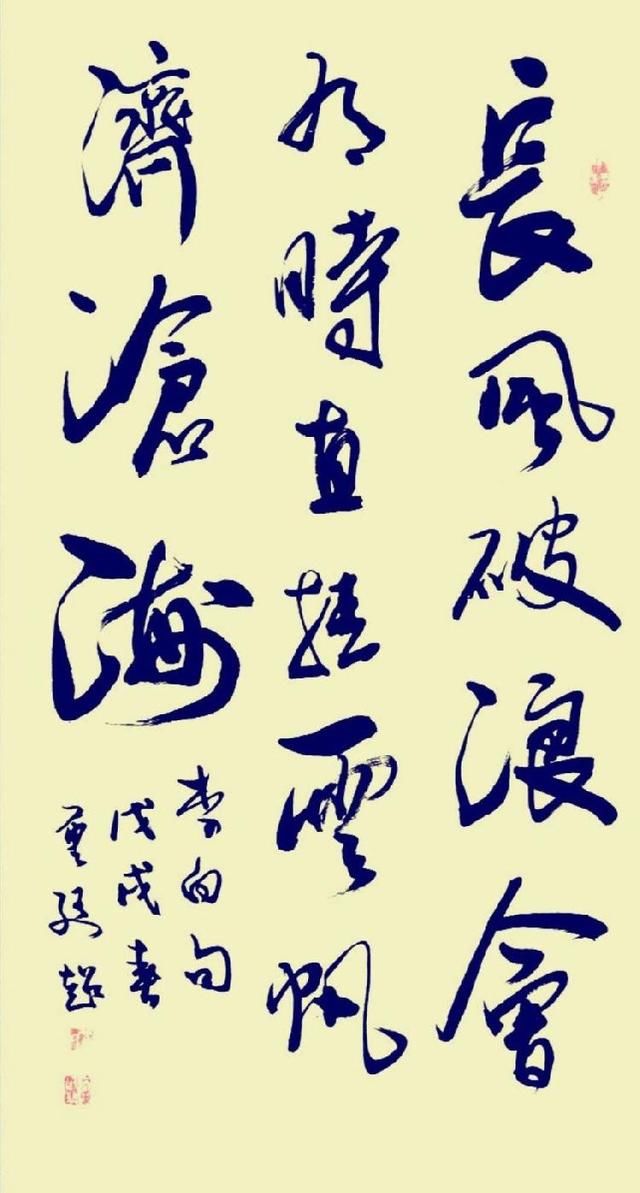 長風破浪會
有時直挂雲帆
濟滄海
李白句
戊戌春
超